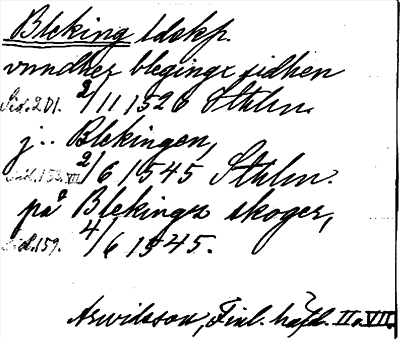 Bleking ldskp.
vnndher bleginge sidhen
Sid. 201. 2/11 1526 Sthlm.
j .. Blekingen,
Sid. 153. VII 2/6 1545 Sthlm.
på Blekinge skoger,
Sid. 159. 4/6 1545.
Arwidsson, Finl. häfd. II o. VII.